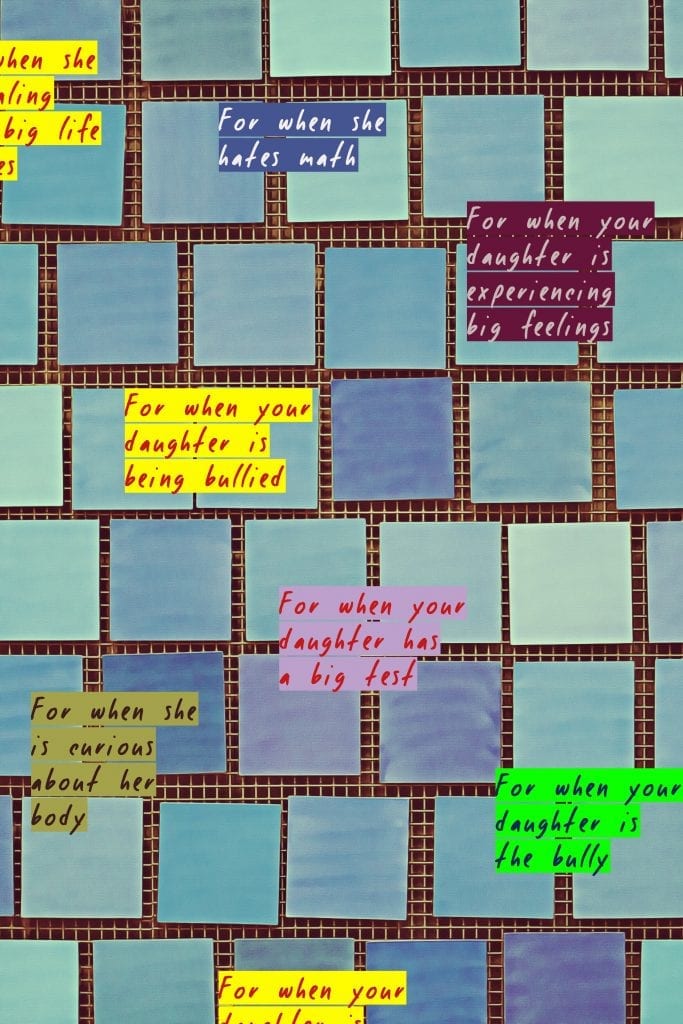 when she
big life
For when she
hates math
For when your
daughter is
experiencing
big feelings
For when your
daughter is
being bullied
For when your
daughter has
a big test
For when she
is curious
about her
body
For when your
daughter is
the bully
For when your
daughter is